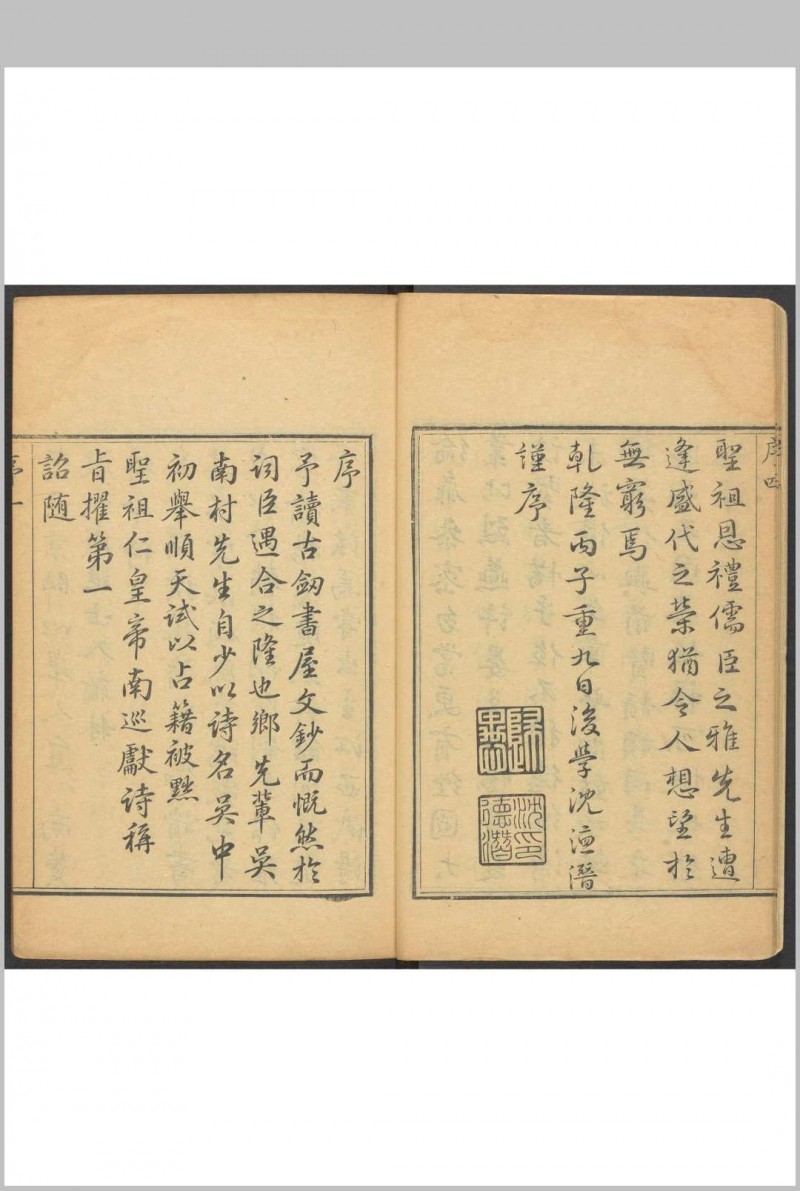 序四
聖祖恩禮儒臣之雅先生遭
逢盛代之榮猶令人想望於
無窮焉
乾隆丙子重九日後學沈德潛
謹序
歸愚
沈印德潛
序
予讀古劒書屋文鈔而慨然於
詞臣遇合之隆也鄉先輩吳
南村先生自少以詩名吳中
初舉順天試以占籍被黜
聖祖仁皇帝南巡獻詩稱
旨擢第一
詔随
序一